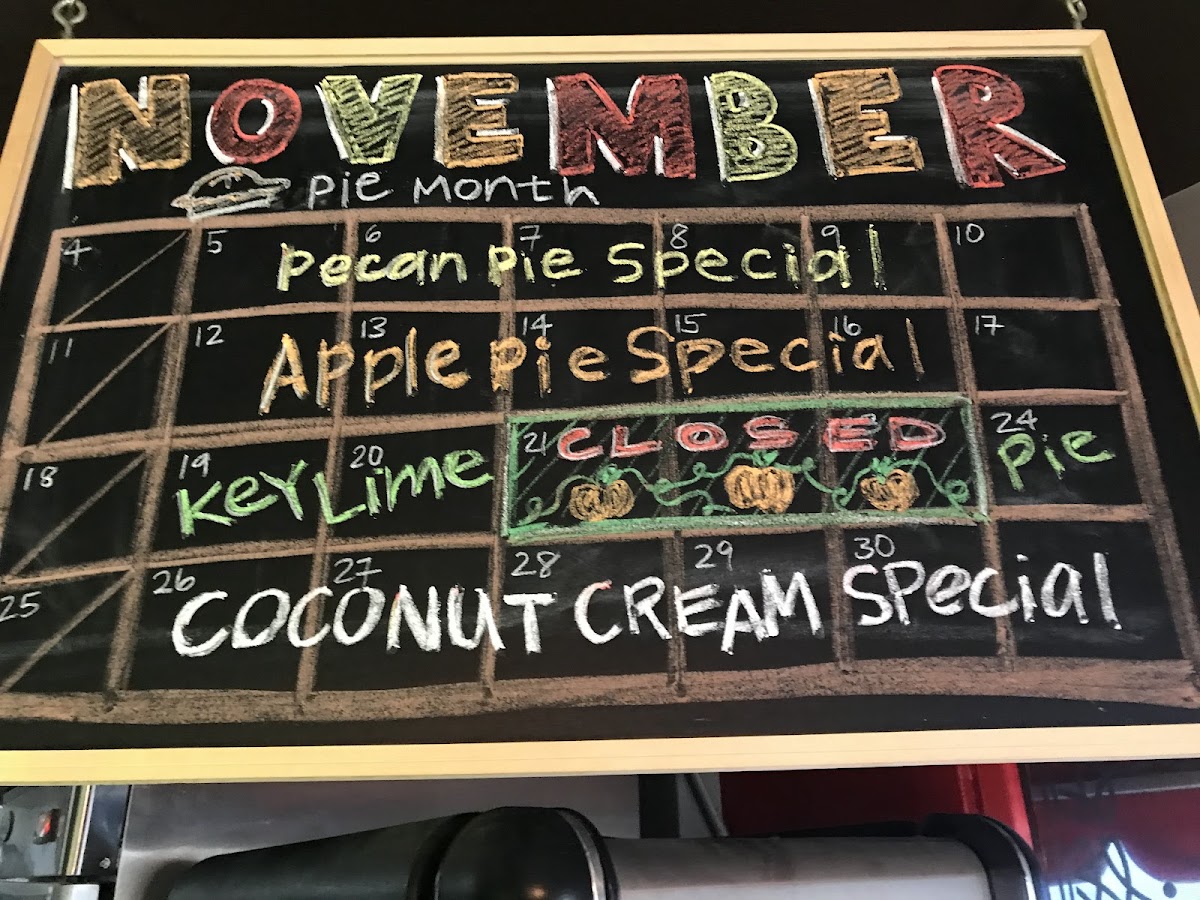 NOVEMBER
Pie Month
4 5 6 7 8 9 10
Pecan Pie Special
11 12 13 14 15 16 17
Apple Pie Special
18 19 20 21 24
CLOSED
Key Lime Pie
25 26 27 28 29 30
COCONUT CREAM Special